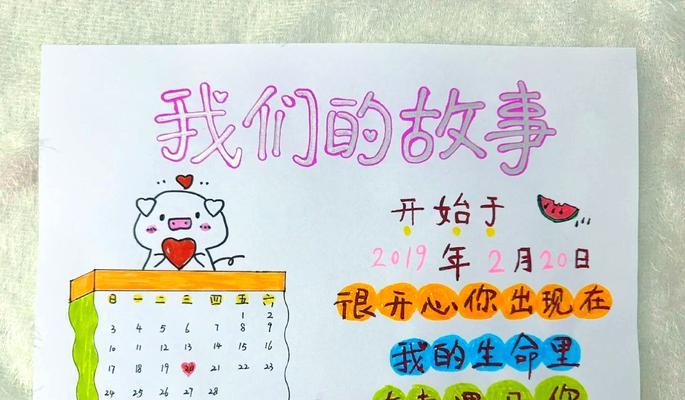 我们的故事
开始于
2019年2月20日
很开心你出现在
我的生命里
遇见你
日 一 二 三 四 五 六
1 2
3 4 5 6 7 8 9
10 11 12 13 14 15 16
17 18 19 20 21 22 23
24 25 26 27 28